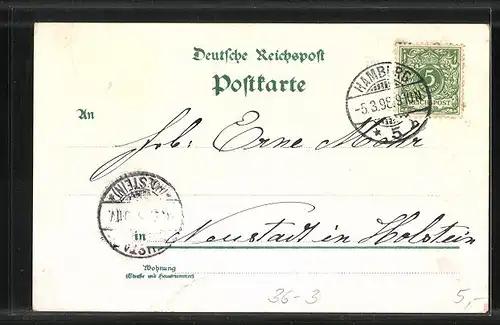 Deutsche Reichspost
Postkarte
HAMBURG
5
REICHSPOST
-5.3.96.
* 5 b
An
Erne Mohr
(HOLSTEIN)
in Neustadt in Holstein
Wohnung
(Straße und Hausnummer)
36-3
5,-